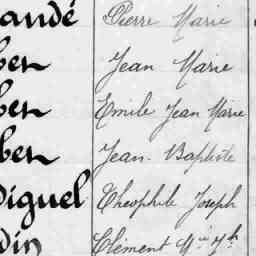 andé Pierre Marie
ber Jean Marie
ber Emile Jean Marie
ber Jean-Baptiste
Diguel Théophile Joseph
din Clément Mie Jh